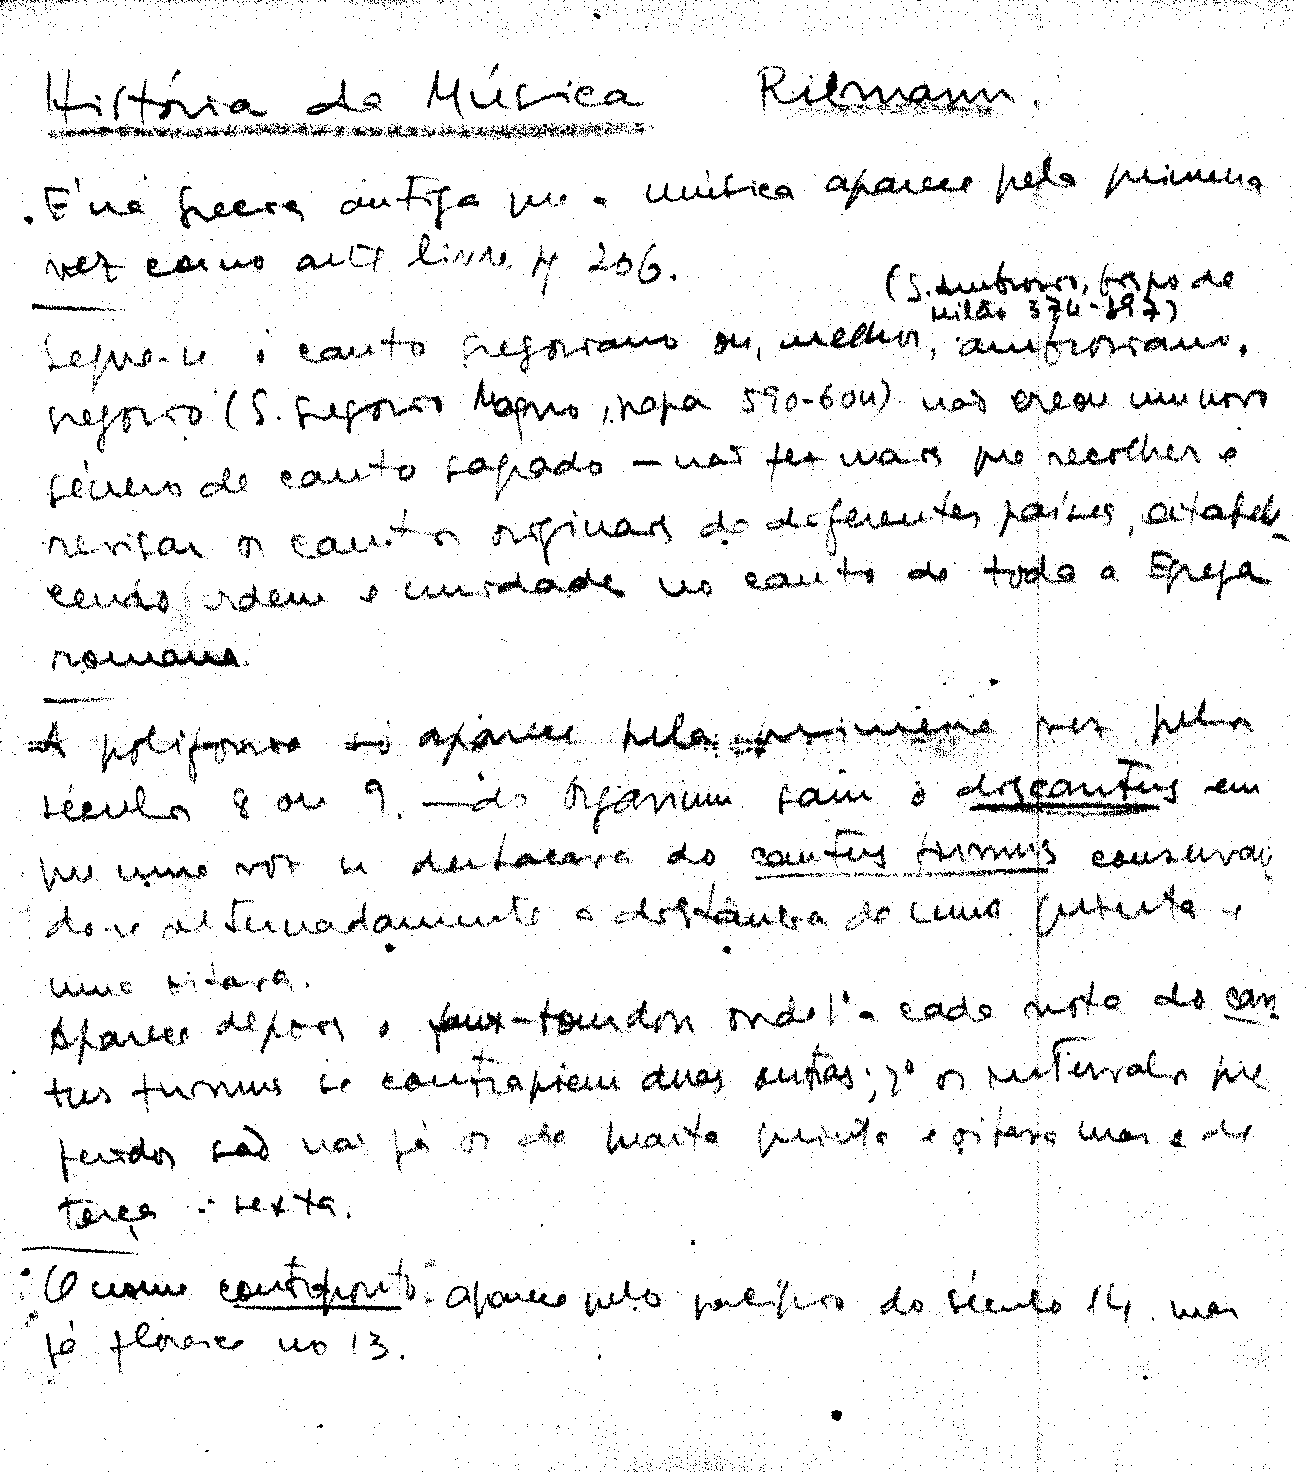 História da Música Riemann.
. É na Grecia antiga que a música aparece pela primeira
vez como arte livre. p 206.
(S. Ambrosio, bispo de
Milão 374-397)
Segue-se o canto gregoriano ou, melhor, ambrosiano.
Gregorio (S. Gregorio Magno, papa 590-604) não creou um novo
género de canto sagrado — não fez mais que recolher e
revisar os cantos originais de diferentes países, estabele-
cendo ordem e unidade no canto de toda a Egreja
romana.
A polifonia só aparece pela primeira vez pelos
séculos 8 ou 9. — do Organum saiu o discantus em
que uma voz se destacava do cantus firmus conservan-
do-se alternadamente a distancia de uma quinta e
uma oitava.
Aparece depois o faux-bourdon onde 1º a cada nota do can-
tus firmus se contrapõem duas outras; 2º os intervalos pre
feridos são não já os de quarta quinta e oitava mas e de
terça e sexta.
. O nome contraponto aparece pelo principio do século 14. mas
já floresce no 13.